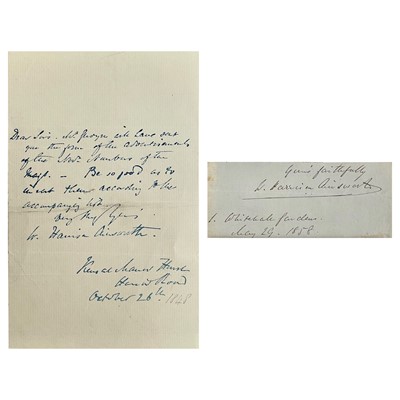 Dear Sirs. Mr will have sent
you the form of the advertisements
of the Nov. Numbers of the
Mags. — Be so good as to
insert them according to the
accompanying list.
Very truly yours
W. Harrison Ainsworth.
Kensal Manor House
Harrow Road
October 26th 1848
Yours faithfully
W. Harrison Ainsworth
1. Whitehall Gardens.
May 29. 1858